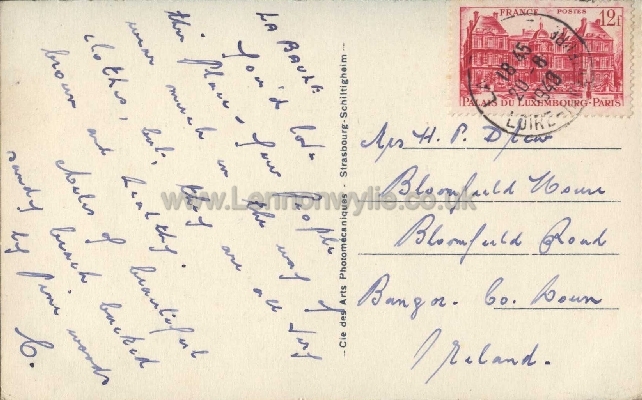 LA BAULE
You'd love
this place - Few people
wear much in the way of
clothes, but they are all very
brown and healthy.
Miles of beautiful
sandy beach backed
by pine woods
C.
Cie des Arts Photomécaniques - Strasbourg-Schiltigheim
FRANCE POSTES 12F
PALAIS DU LUXEMBOURG-PARIS
18 45
6
1949
LOIRE
Mrs H. P. Drew
Bloomfield House
Bloomfield Road
Bangor. Co. Down
Ireland.
www.Lennonwylie.co.uk